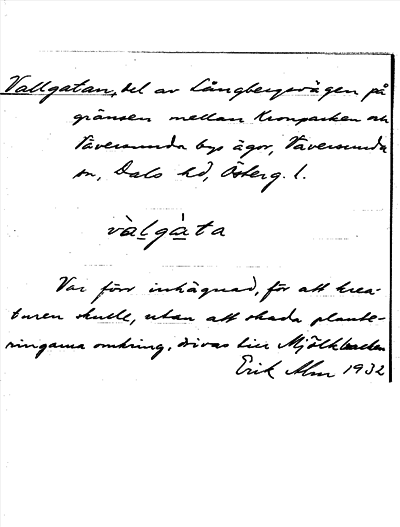 Vallgatan, del av Långbergsvägen på
gränsen mellan Kronparken och
Väversunda bys ägor, Väversunda
sn, Dals hd, Österg. l.
vàlgàta
Var förr inhägnad, för att krea-
turen skulle, utan att skada plante-
ringarna omkring, drivas till Mjölkbacken
Erik Alm 1932